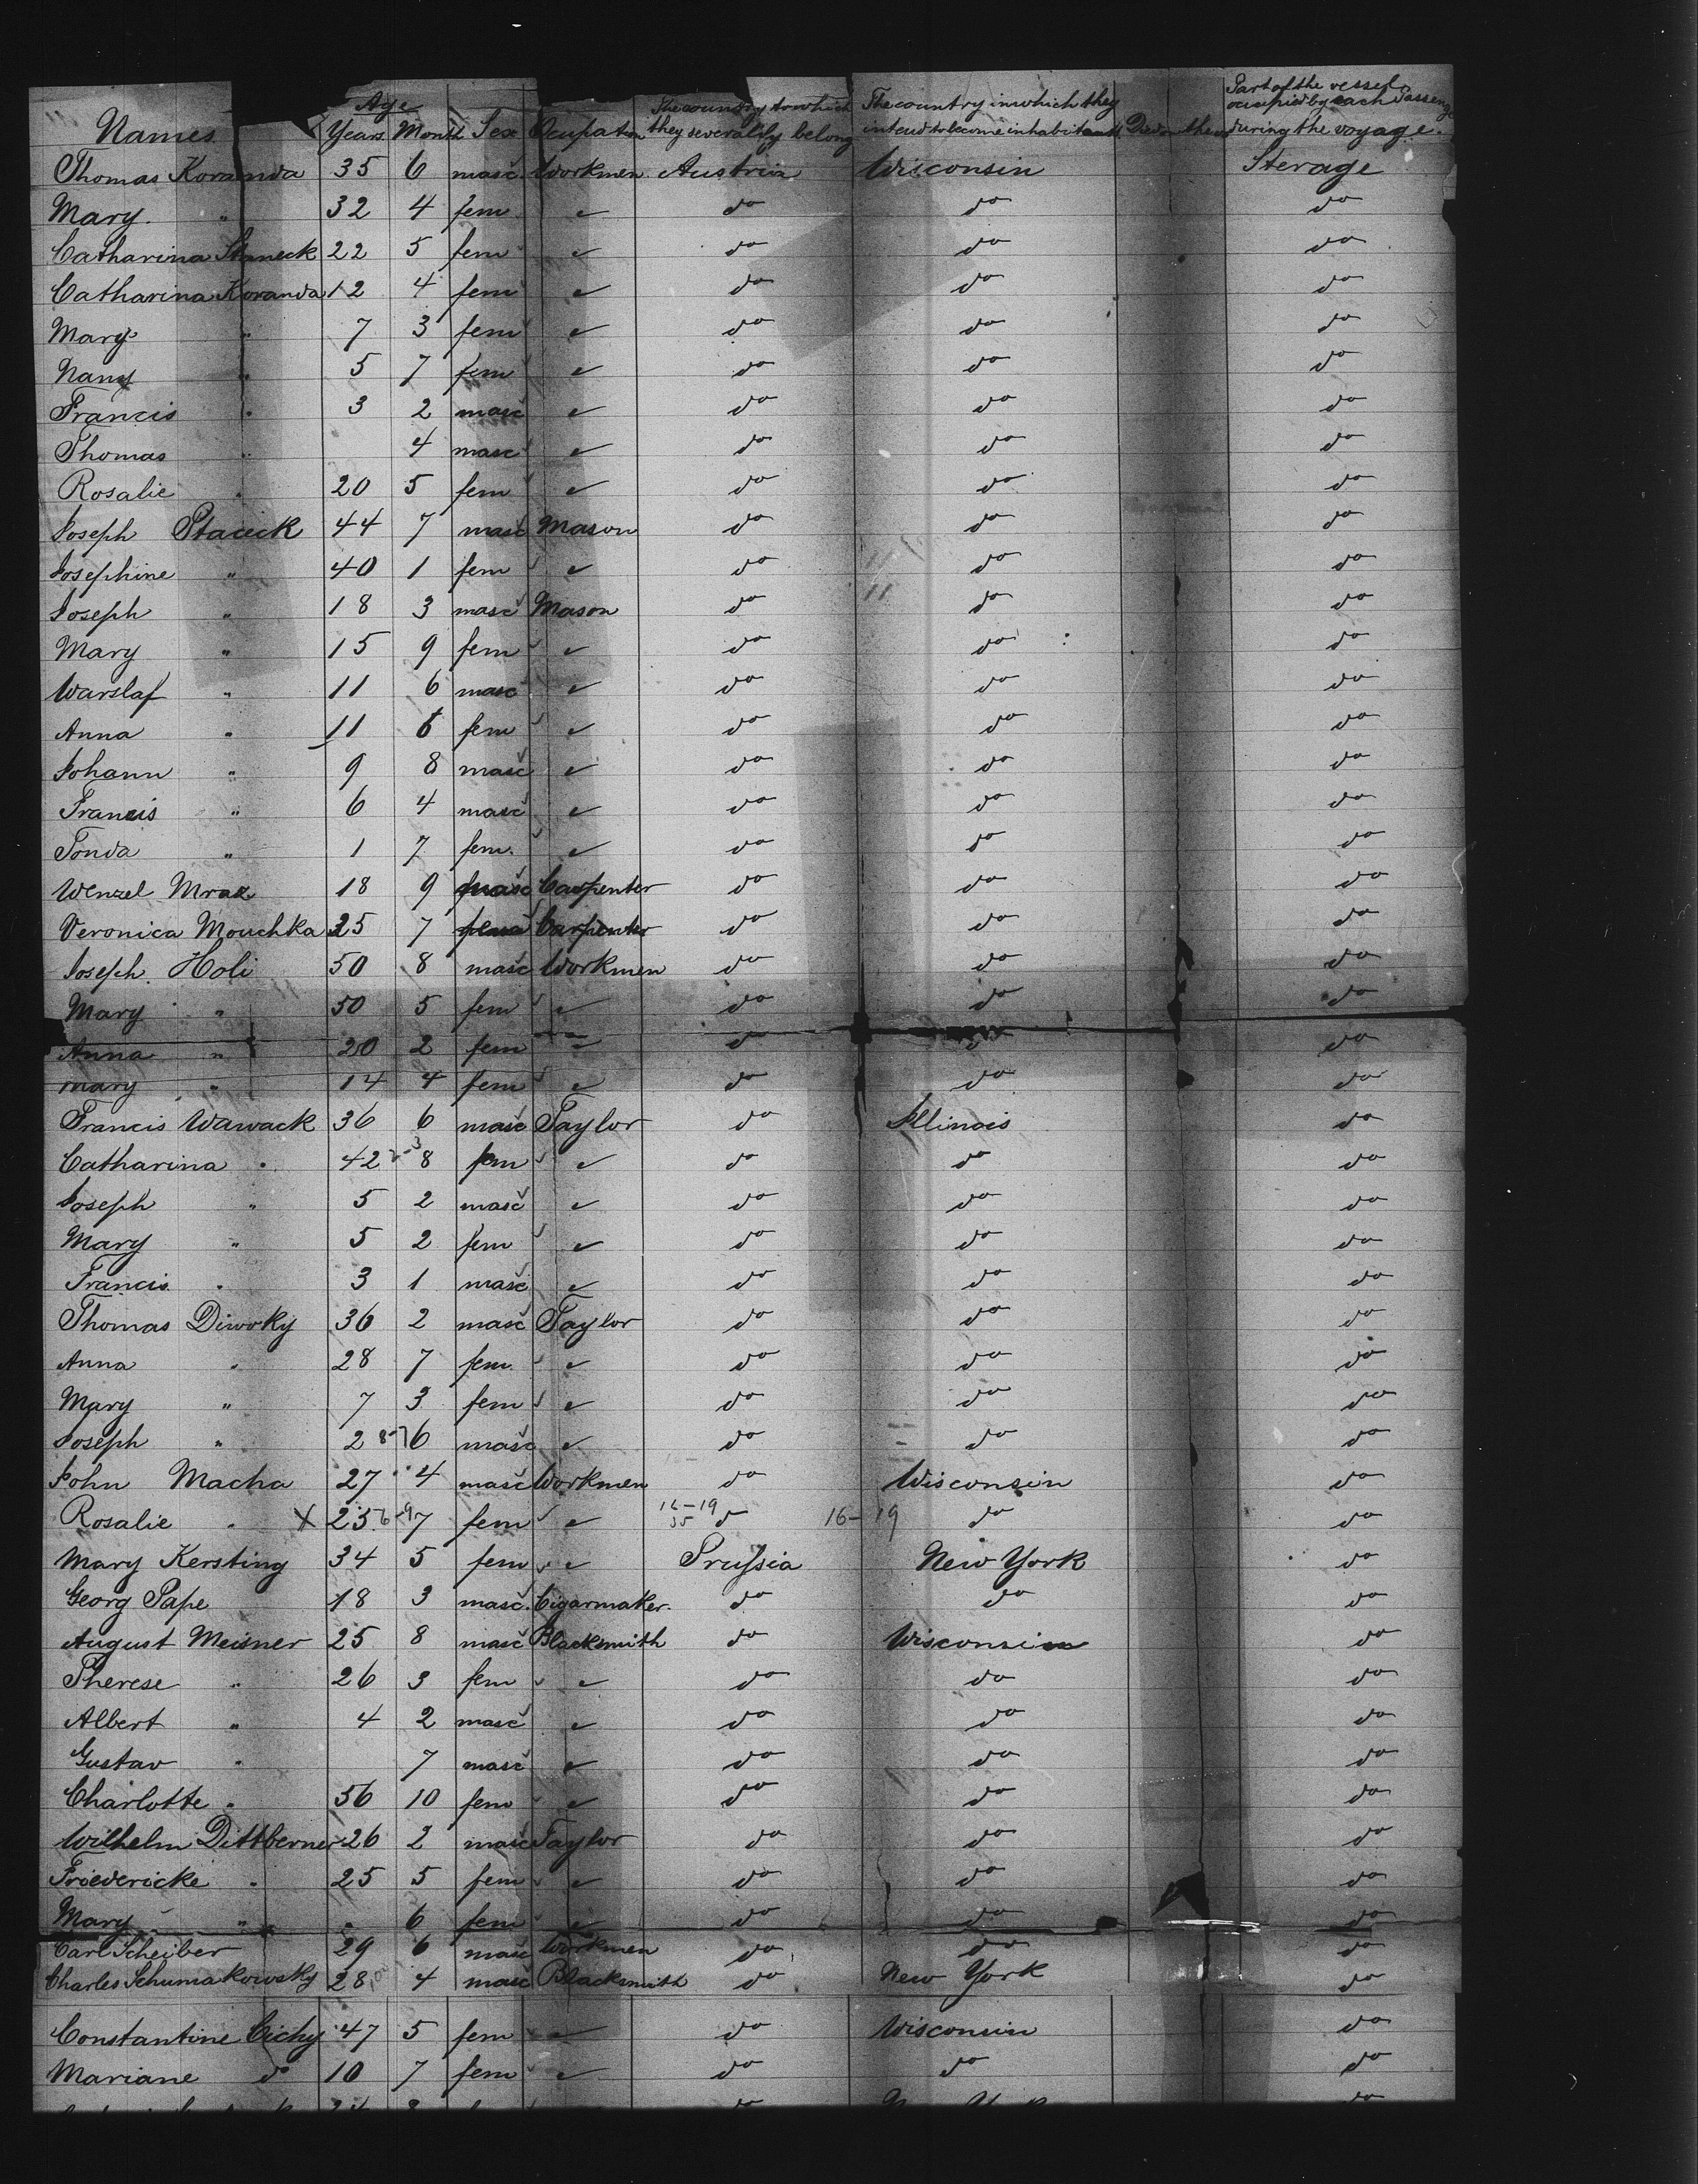 Names Age Years Month Sex Ocupaton The country to which they severally belong The country in which they intend to become inhabitants Part of the vessel occupied by each passenger during the voyage.
Thomas Koranda 35 6 masc Workmen Austria Wisconsin Sterage
Mary " 32 4 fem do do do
Catharina Staneck 22 5 fem do do do
Catharina Koranda 12 4 fem do do do
Mary " 7 3 fem do do do
Nany " 5 7 fem do do do
Francis " 3 2 masc do do do
Thomas " 4 masc do do do
Rosalie " 20 5 fem do do do
Joseph Ptaceck 44 7 masc Mason do do do
Josephine " 40 1 fem do do do
Joseph " 18 3 masc Mason do do do
Mary " 15 9 fem do do do
Warslaf " 11 6 masc do do do
Anna " 11 6 fem do do do
Johann " 9 8 masc do do do
Francis " 6 4 masc do do do
Tonda " 1 7 fem. do do do
Wenzel Mraz 18 9 masc Carpenter do do do
Veronica Mouchka 25 7 Carpenter do do do
Joseph Holi 50 8 masc Workmen do do do
Mary " 50 5 fem do do do
Anna " 20 2 fem do do do
Mary " 14 4 fem do do do
Francis Wawack 36 6 masc Taylor do Illinois do
Catharina " 42 8 fem do do do
Joseph " 5 2 masc do do do
Mary " 5 2 fem do do do
Francis " 3 1 masc do do do
Thomas Diwoky 36 2 masc Taylor do do do
Anna " 28 7 fem do do do
Mary " 7 3 fem do do do
Joseph " 2 6 masc do do do
John Macha 27 4 masc Workmen do Wisconsin do
Rosalie " X 25 7 fem 16-19 do 16-19 do do
Mary Kersting 34 5 fem Prussia New York do
Georg Pape 18 3 masc. Cigarmaker. do do do
August Meisner 25 8 masc Blacksmith do Wisconsin do
Therese " 26 3 fem do do do
Albert " 4 2 masc do do do
Gustav " 7 masc do do do
Charlotte " 56 10 fem do do do
Wilhelm Dittberner 26 2 masc Taylor do do do
Friedericke " 25 5 fem do do do
Mary " " 6 fem do do do
Carl Scheiber 29 6 masc Workmen do do do
Charles Schumakowsky 28 4 masc Blacksmith do New York do
Constantine Cichy 47 5 fem do Wisconsin do
Mariane do 10 7 fem do do do